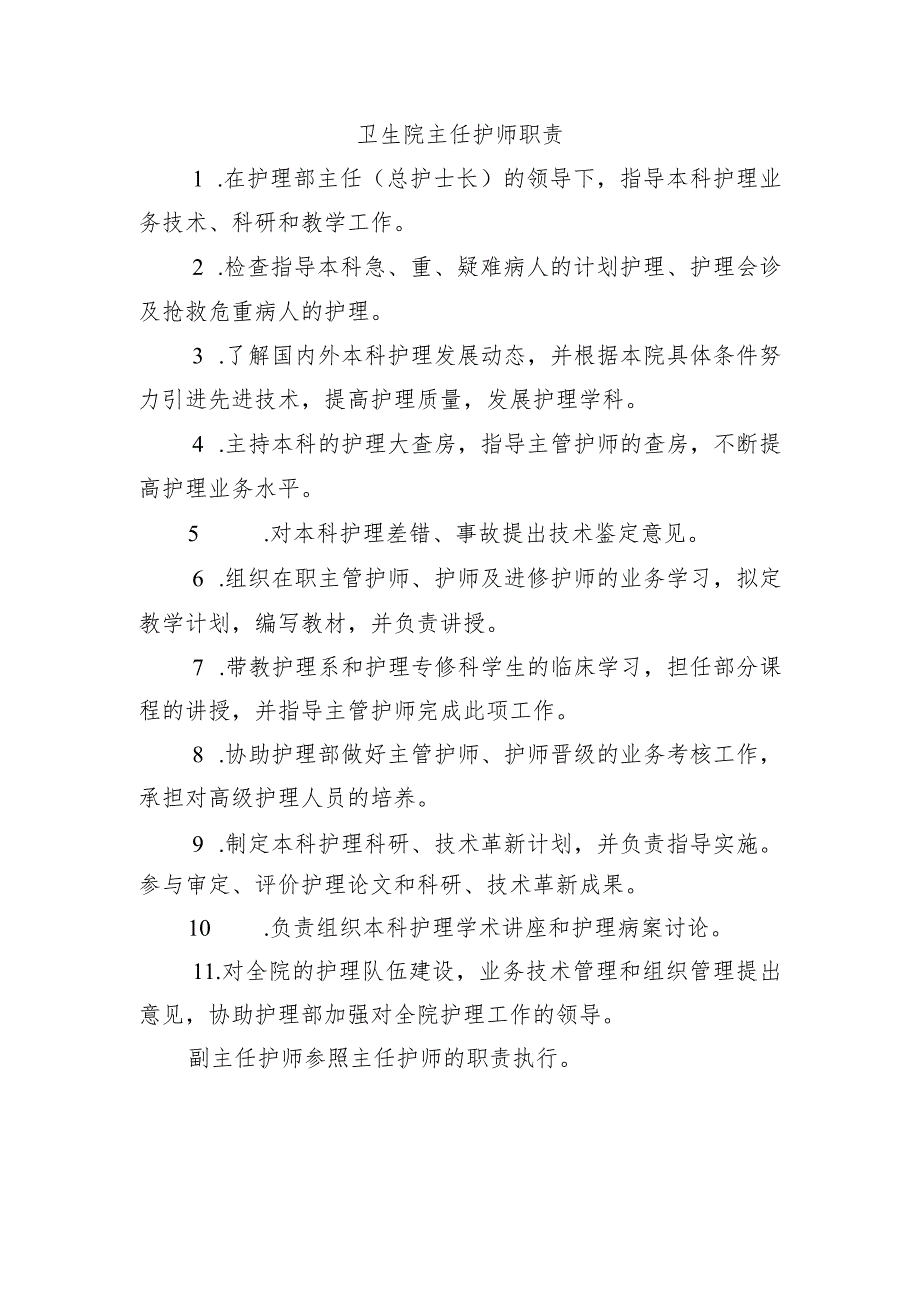 卫生院主任护师职责
1 .在护理部主任（总护士长）的领导下，指导本科护理业
务技术、科研和教学工作。
2 .检查指导本科急、重、疑难病人的计划护理、护理会诊
及抢救危重病人的护理。
3 .了解国内外本科护理发展动态，并根据本院具体条件努
力引进先进技术，提高护理质量，发展护理学科。
4 .主持本科的护理大查房，指导主管护师的查房，不断提
高护理业务水平。
5 .对本科护理差错、事故提出技术鉴定意见。
6 .组织在职主管护师、护师及进修护师的业务学习，拟定
教学计划，编写教材，并负责讲授。
7 .带教护理系和护理专修科学生的临床学习，担任部分课
程的讲授，并指导主管护师完成此项工作。
8 .协助护理部做好主管护师、护师晋级的业务考核工作，
承担对高级护理人员的培养。
9 .制定本科护理科研、技术革新计划，并负责指导实施。
参与审定、评价护理论文和科研、技术革新成果。
10 .负责组织本科护理学术讲座和护理病案讨论。
11.对全院的护理队伍建设，业务技术管理和组织管理提出
意见，协助护理部加强对全院护理工作的领导。
副主任护师参照主任护师的职责执行。